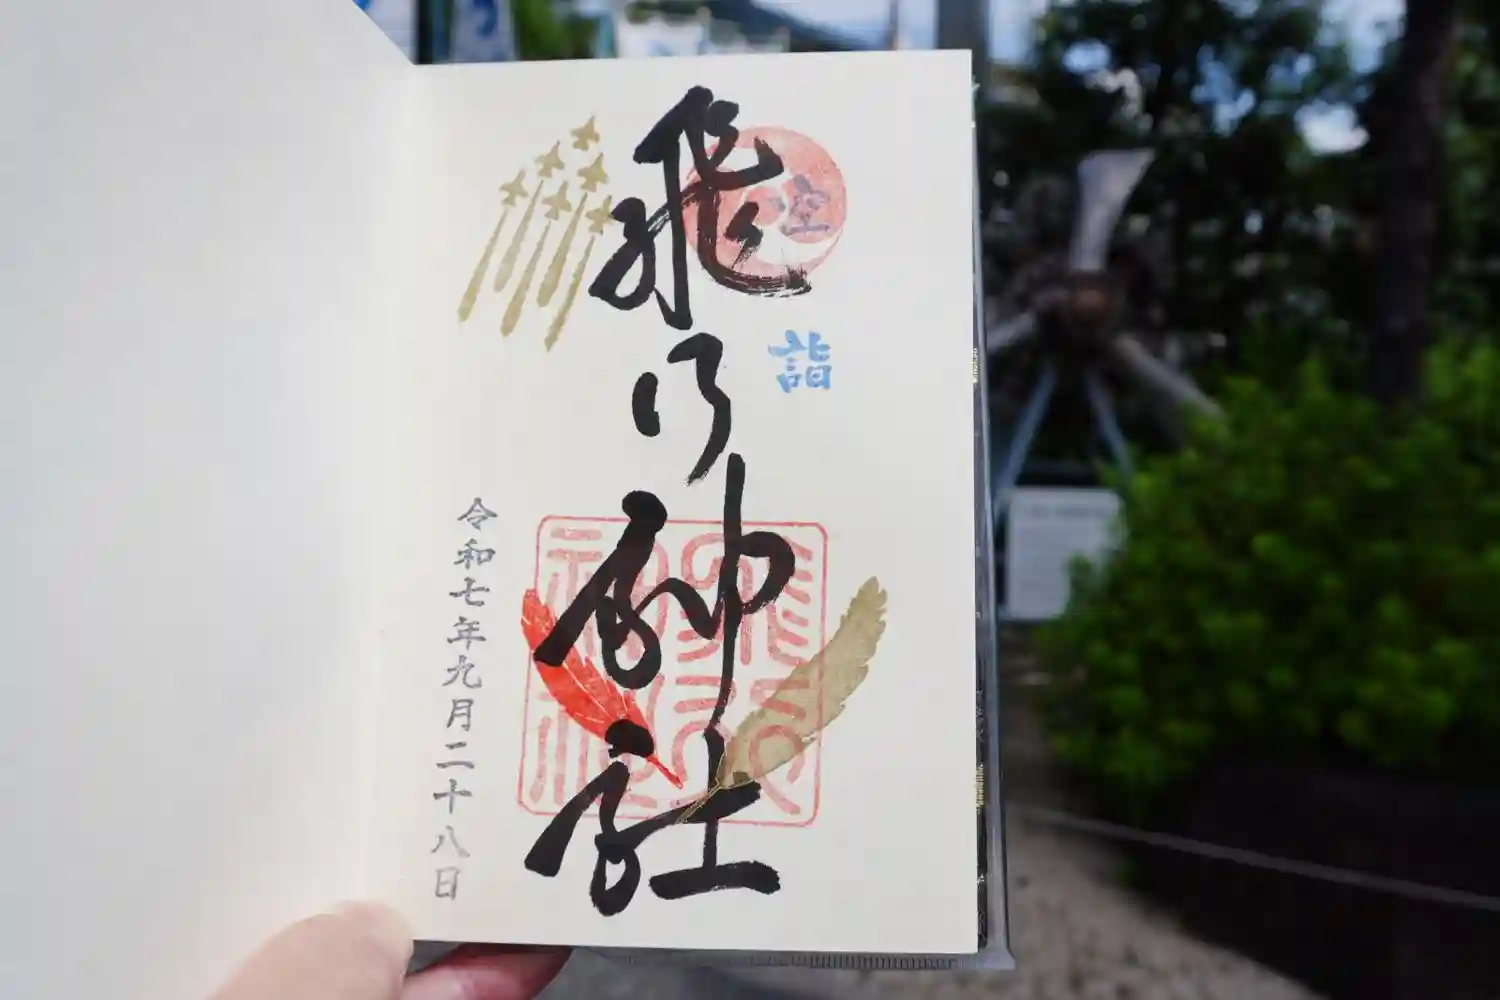 空
詣
飛行神社
飛行
神社
令和七年九月二十八日